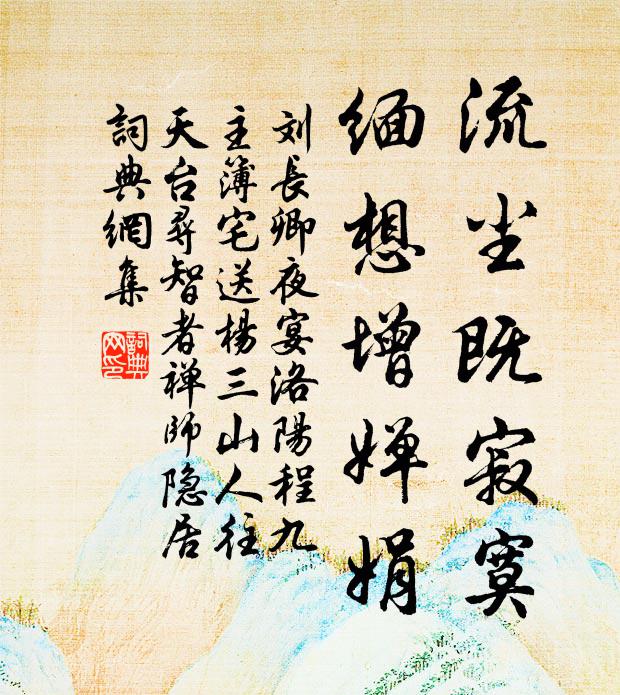 流尘既寂寞
缅想增婵娟
刘長卿夜宴洛陽程九
主簿宅送楊三山人往
天台尋智者禅师隐居
詞典網集
詞典
网印